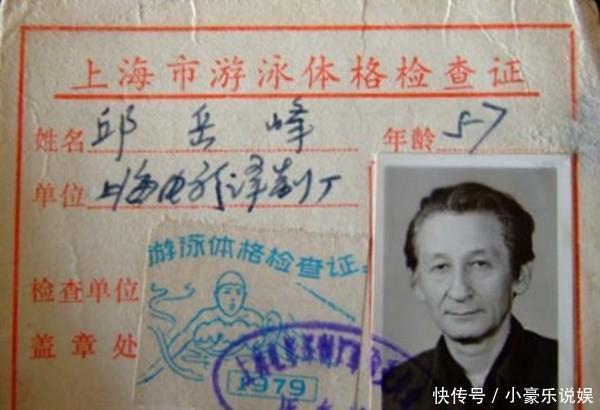 上海市游泳体格检查证
姓名 邱岳峰 年龄 57
单位 上海电影译制厂
游泳体格检查证
检查单位
盖章处
1979
快传号 / 小豪乐说娱